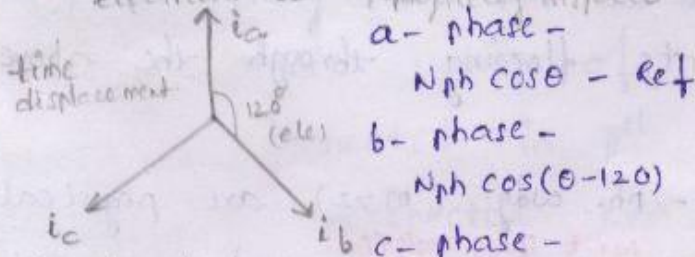 i_a
time
displacement
120°
(ele)
i_c
i_b
a- phase -
Nph cosθ - Ref
b- phase -
Nph cos(θ-120)
c- phase -